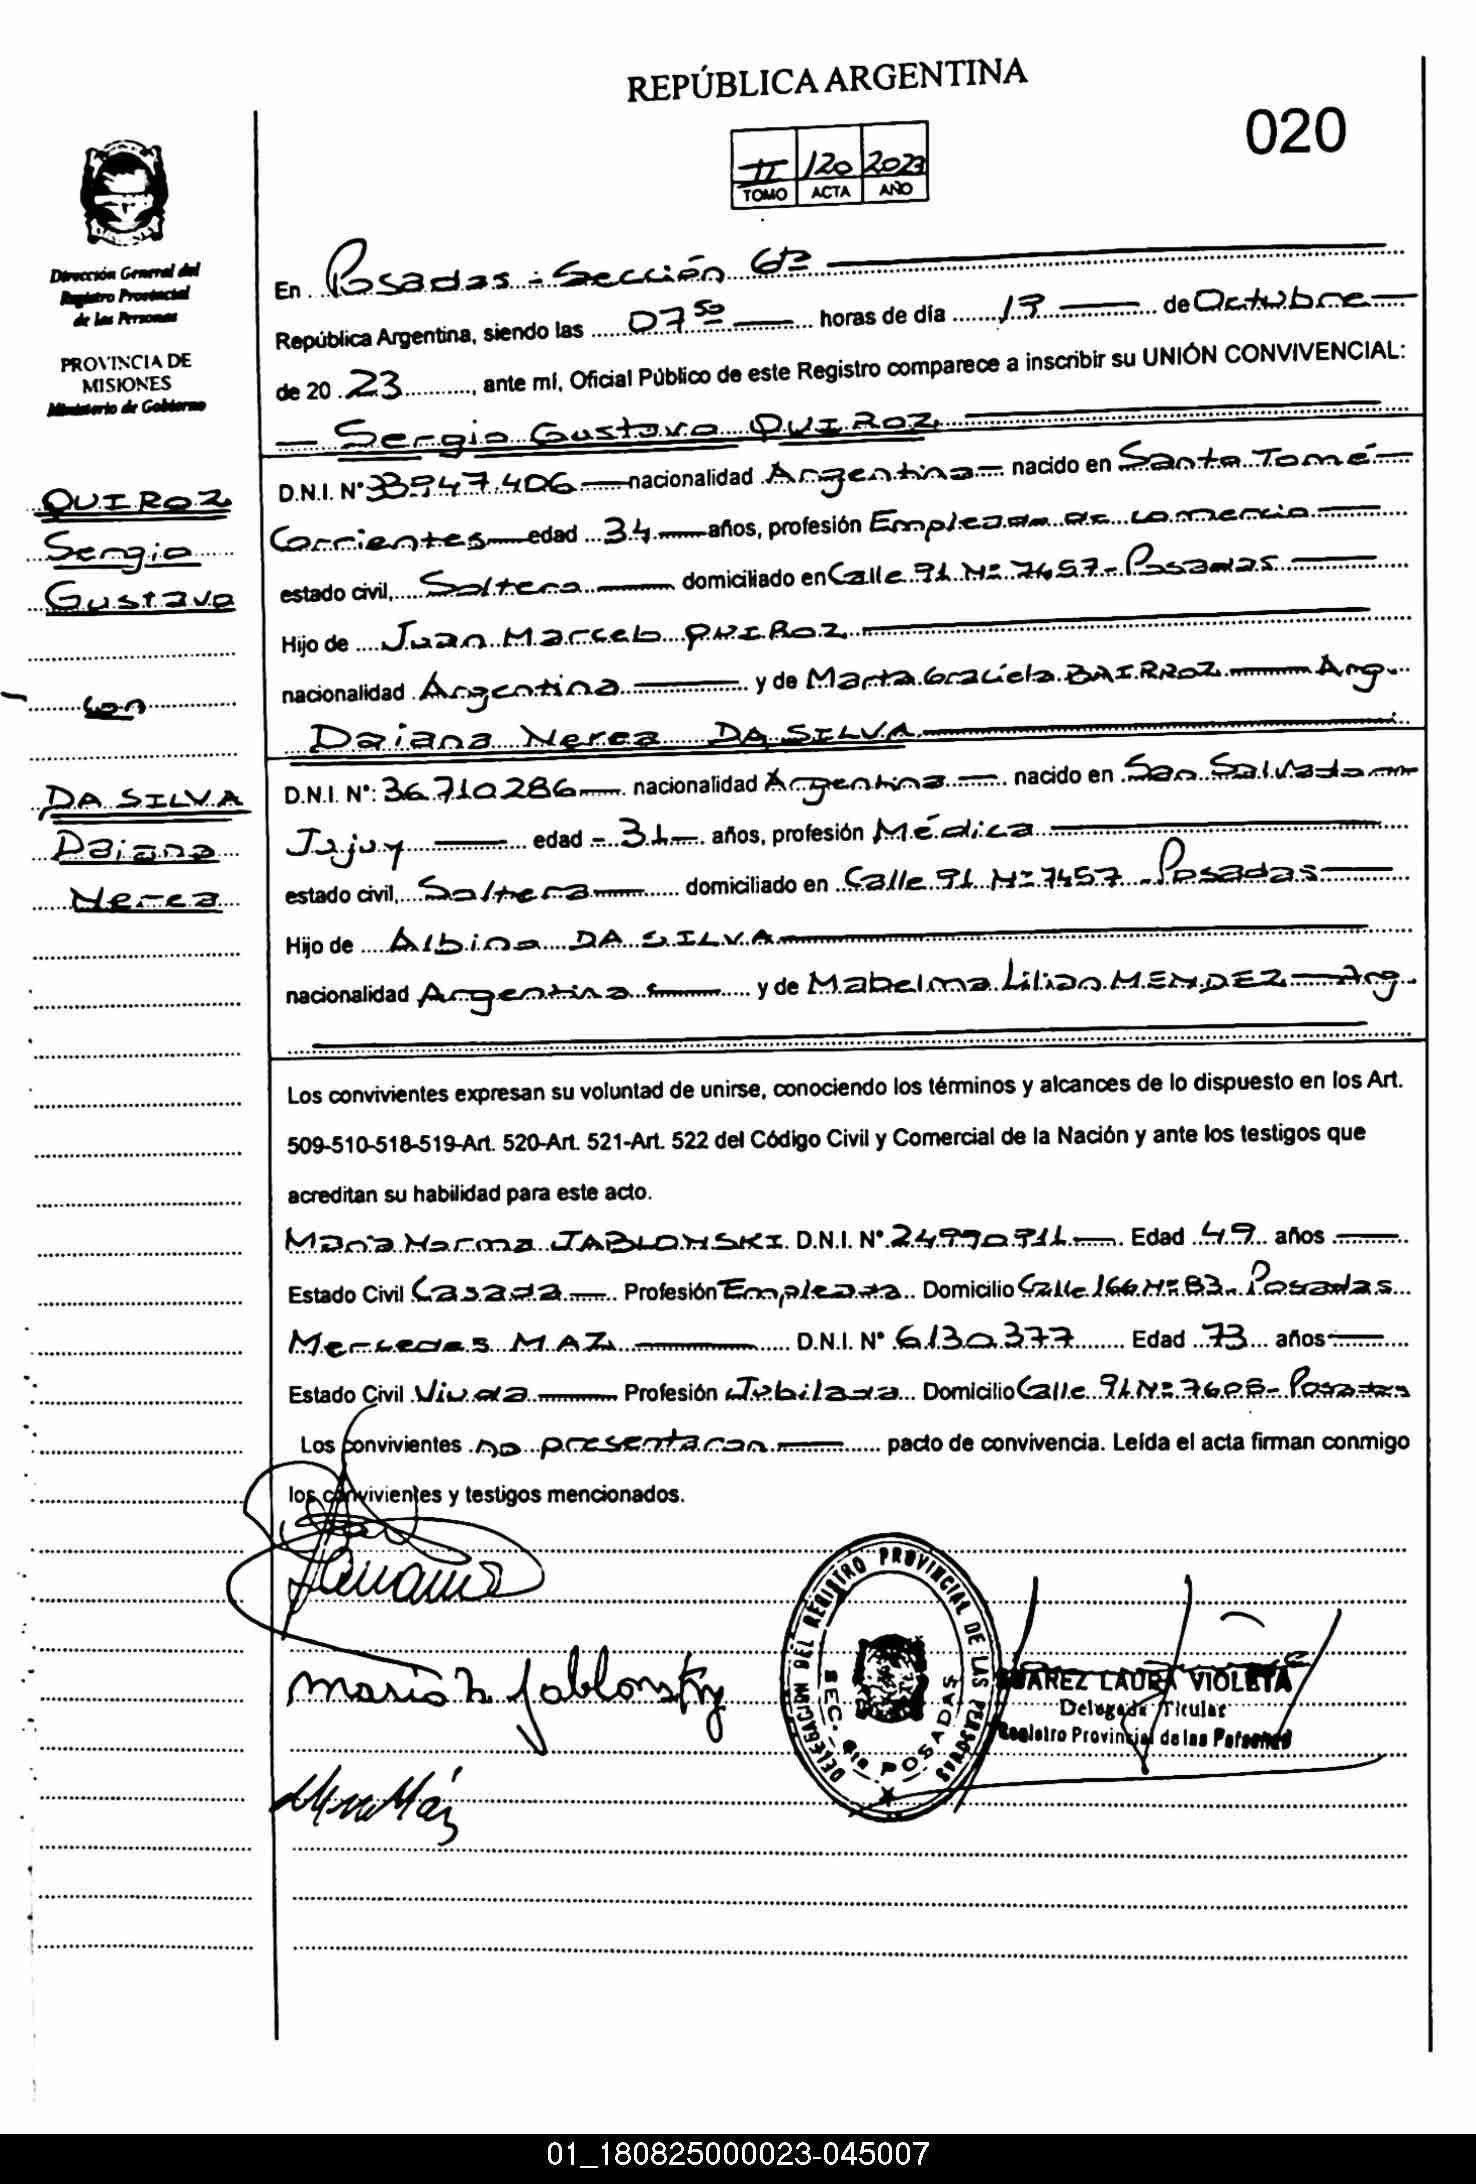 REPÚBLICA ARGENTINA
020
II 120 2023
TOMO ACTA AÑO
Dirección General del
Registro Provincial
de las Personas
PROVINCIA DE
MISIONES
Ministerio de Gobierno
En Posadas - Sección 6ta
República Argentina, siendo las 07 50 horas de día de Octubre
de 20 23, ante mí, Oficial Público de este Registro comparece a inscribir su UNIÓN CONVIVENCIAL:
Sergio Gustavo QUIROZ
D.N.I. N° 33.947.406 nacionalidad Argentina nacido en Santo Tomé
Corrientes edad 34 años, profesión Empleado de comercio
estado civil, Soltero domiciliado en Calle 91 N° 7457 - Posadas
Hijo de Juan Marcelo QUIROZ
nacionalidad Argentina y de Marta Graciela BAIRROZ Arg.
Daiana Nerea DA SILVA
D.N.I. N°: 36.710.286 nacionalidad Argentina nacido en San Salvador
Jujuy edad - 31 años, profesión Médica
estado civil, Soltera domiciliado en Calle 91 N° 7457 - Posadas
Hijo de Albino DA SILVA
nacionalidad Argentina y de Mabelma Lilian MENDEZ Arg.
QUIROZ
Sergio
Gustavo
con
DA SILVA
Daiana
Nerea
Los convivientes expresan su voluntad de unirse, conociendo los términos y alcances de lo dispuesto en los Art.
509-510-518-519-Art. 520-Art. 521-Art. 522 del Código Civil y Comercial de la Nación y ante los testigos que
acreditan su habilidad para este acto.
María Norma JABLONSKI D.N.I. N° 24.990.911 Edad 49 años
Estado Civil Casada Profesión Empleada Domicilio Calle 166 N° 83 - Posadas
Mercedes MAZ D.N.I. N° 6.130.377 Edad 73 años
Estado Civil Viuda Profesión Jubilada Domicilio Calle 91 N° 7608 - Posadas
Los convivientes no presentaron pacto de convivencia. Leída el acta firman conmigo
los convivientes y testigos mencionados.
Maria N. Jablonsky
DELEGACION DEL REGISTRO PROVINCIAL DE LAS PERSONAS
SEC. 6ta POSADAS
SUAREZ LAURA VIOLETA
Delegada Titular
Registro Provincial de las Personas
01_180825000023-045007